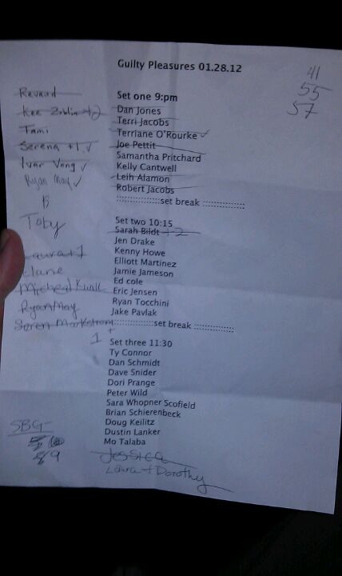 Guilty Pleasures 01.28.12
41
55
57
Set one 9:pm
Dan Jones
Terri Jacobs
Terriane O'Rourke
Joe Pettit
Samantha Pritchard
Kelly Cantwell
Leih Alamon
Robert Jacobs
::::::::::::::set break ::::::::::::::
Set two 10:15
Sarah Bildt +2
Jen Drake
Kenny Howe
Elliott Martinez
Jamie Jameson
Ed cole
Eric Jensen
Ryan Tocchini
Jake Pavlak
::::::::::::::set break ::::::::::::::
1 Set three 11:30
Ty Connor
Dan Schmidt
Dave Snider
Dori Prange
Peter Wild
Sara Whopner Scofield
Brian Schierenbeck
Doug Keilitz
Dustin Lanker
Mo Talaba
Jessica
Laura + Dorothy
Tami
Serena +1
Ivar Vong
Toby
SBG
89